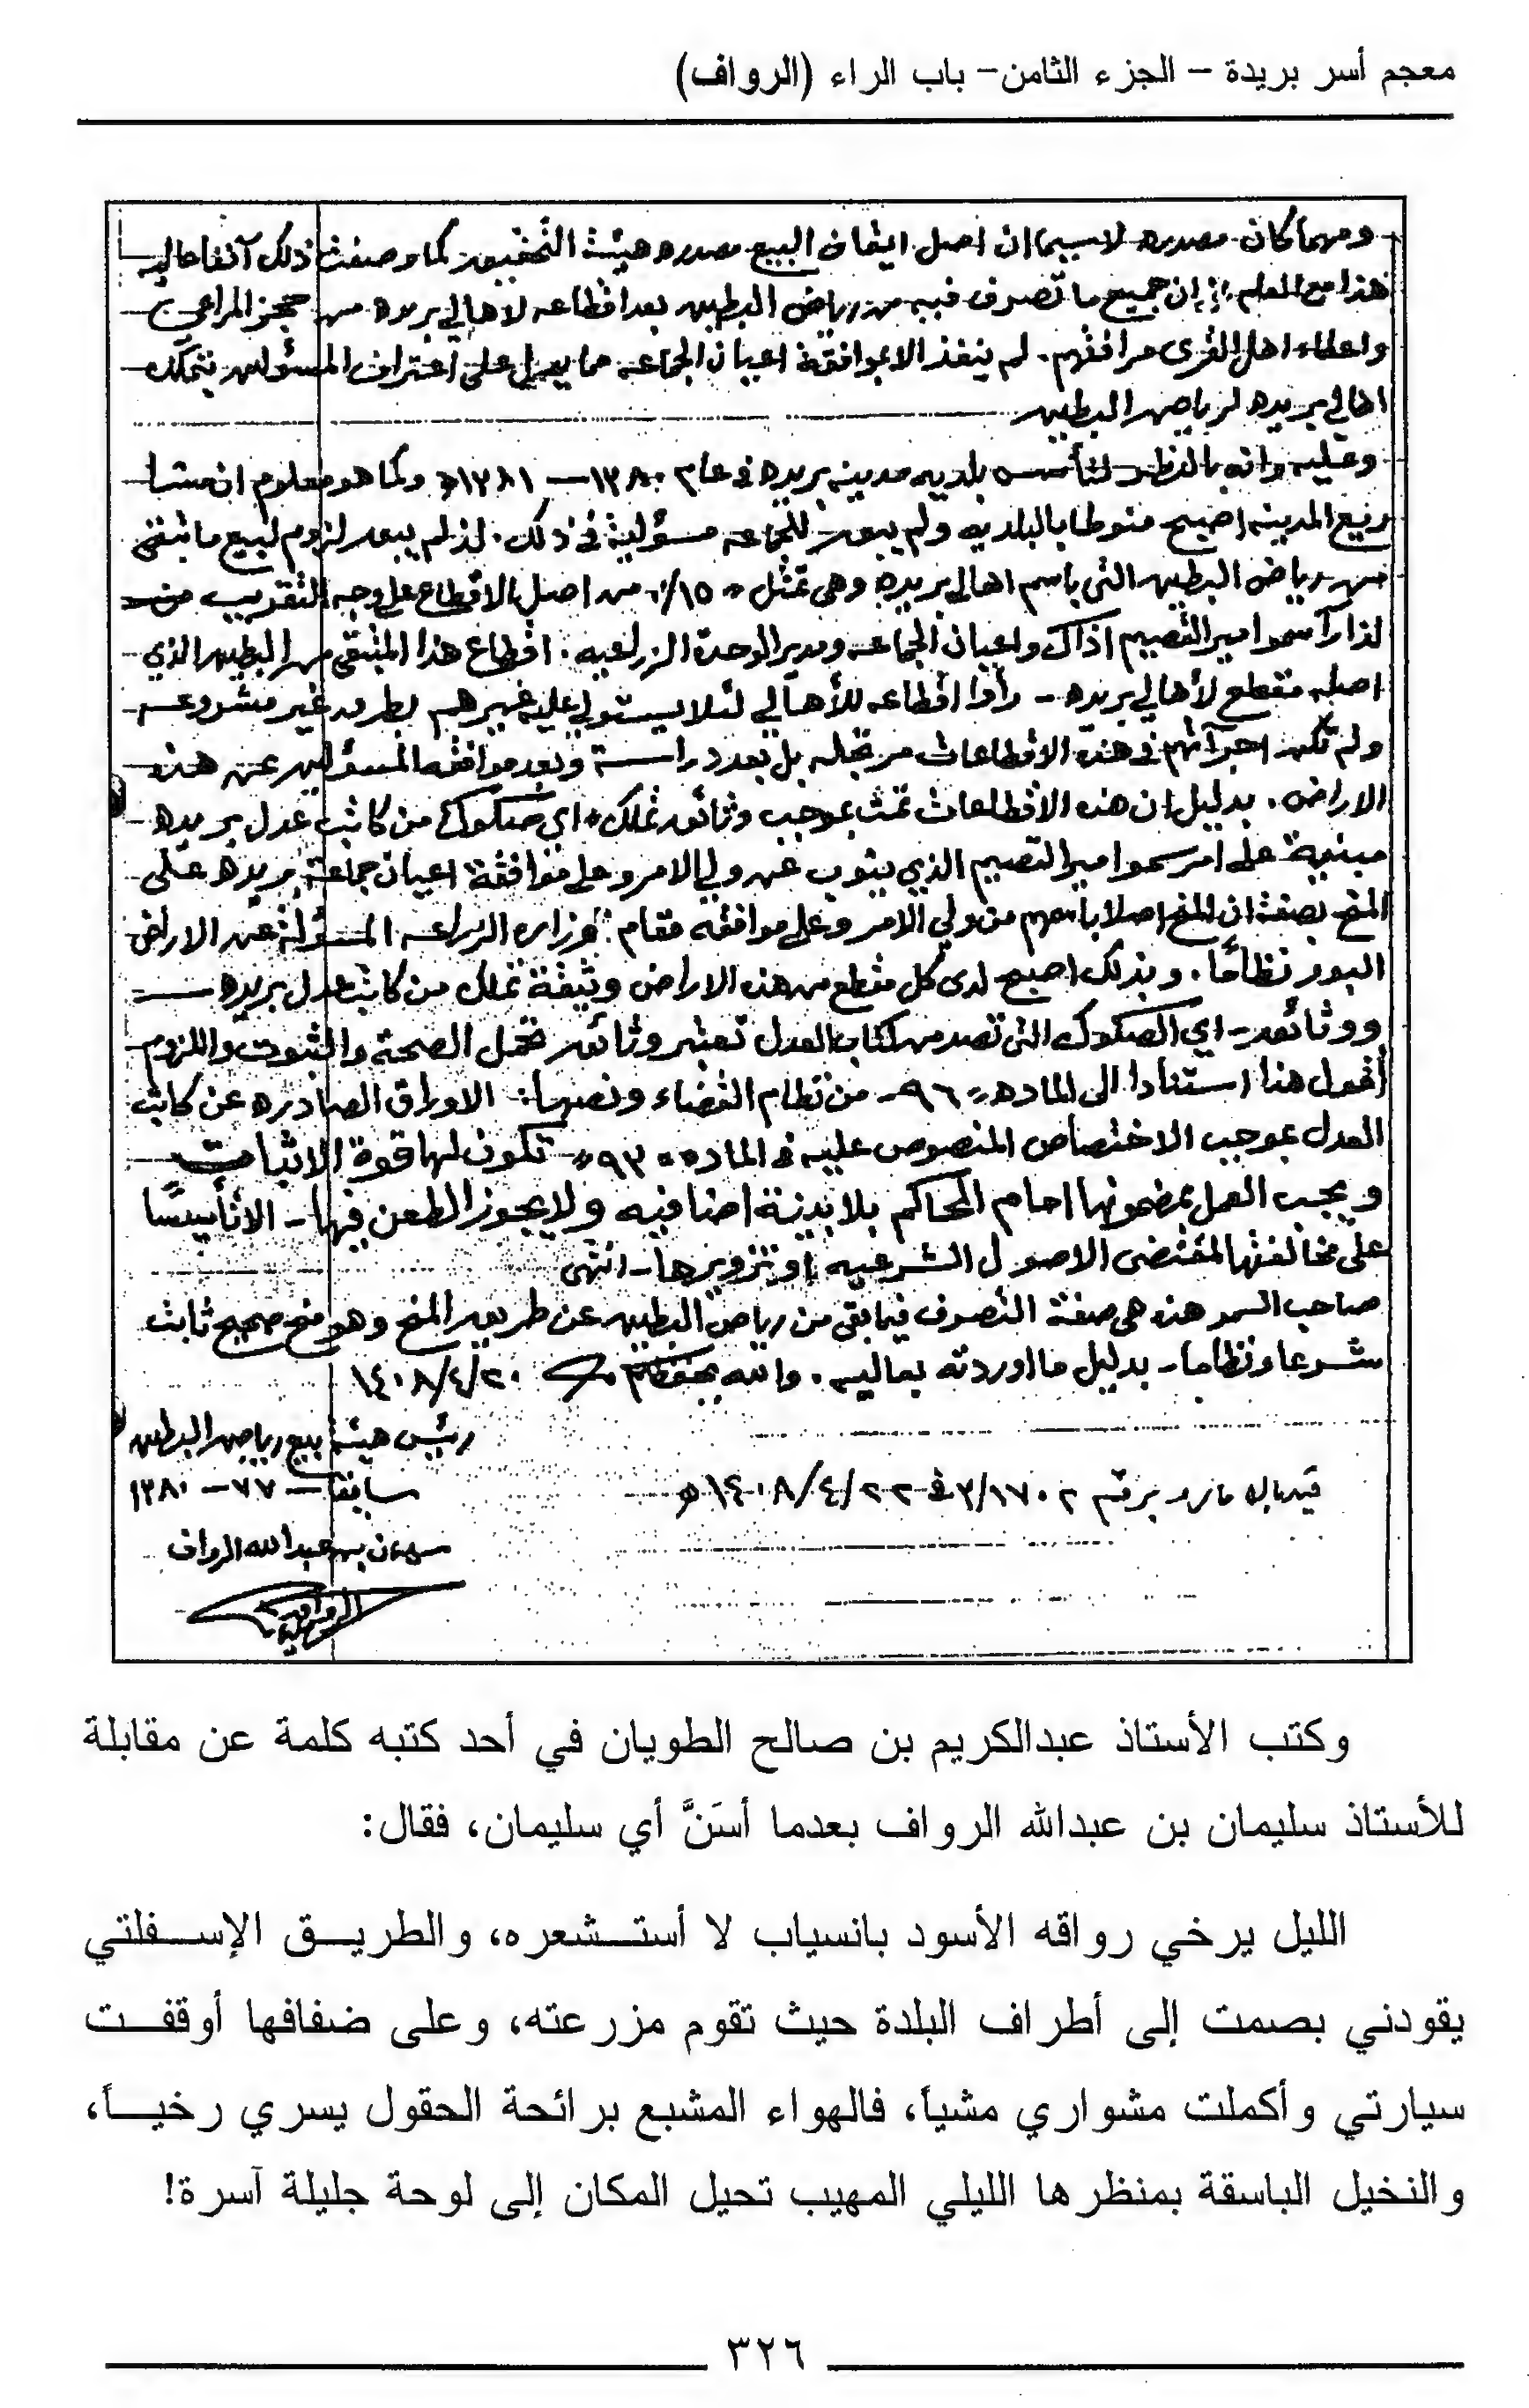 معجم أسر بريدة – الجزء الثامن– باب الراء (الرواف)
ومهما كان مصدره لاسيما ان اصل ايقاف البيع مصدره هيئة التحقيق كما وصفت ذلك آنفا
هذا مع العلم ان جميع ما تصرف فيه من رياض البطين بعد اقطاعه لاهالي بريده من حجز المراعي
واعطاء اهل القرى مرافقهم. لم ينفذ الا بموافقة اعيان الجماعه مما يدل على اعتراف المسؤلين بتملك
اهالي بريده لرياض البطين
وعليه وانه بالنظر لتأسس بلدية مدينة بريده في عام ١٣٨٠ – ١٣٨١ه وكما هو معلوم ان
ريع المدينه اصبح منوطا بالبلديه ولم يعد للجماعه مسؤلية في ذلك. لذ لم يعد لزوم لبيع ما تبقى
من رياض البطين التي باسم اهالي بريده وهي تمثل ١٥٪ من اصل الاقطاع على وجه التقريب
لذا رآ سموا امير القصيم اذاك واعيان الجماعه ومدير الوحدة الزراعيه. اقطاع هذا المتبقي من البطين الذي
اصله مقطع لأهالي بريده – رأوا اقطاعه للأهالي لئلا يستولي عليه غيرهم بطرق غير مشروعه
ولم تكن اجرآتهم في هذه الاقطاعات مرتجله بل بعد دراسة وبعد موافقة المسؤلين عن هذه
الاراض. بدليل ان هذه الاقطاعات تمت بموجب وثائق تملك اي صكوك من كاتب عدل بريده
مبنية على امر سموا امير القصيم الذي ينوب عن ولي الامر وعلى موافقة اعيان جماعة بريده على
المنح بصفة ان المنح اصلا باسمهم من ولي الامر وعلى موافقه مقام وزاره الزراعه المسؤلة عن الاراض
البور نظاما. وبذلك اصبح لدى كل مقطع من هذه الاراض وثيقة تملك من كاتب عدل بريده
ووثائق – اي الصكوك التي تصدر من كتاب العدل تعتبر وثائق تحمل الصحة والثبوت واللزوم
أقول هذا استنادا الى الماده ٩٦ – من نظام القضاء ونصها: الاوراق الصادره عن كاتب
العدل بموجب الاختصاص المنصوص عليه في الماده ٩٣ – تكون لها قوة الاثبات
ويجب العمل بمضمونها امام المحاكم بلا بينة اضافيه ولا يجوز الطعن فيها – الا تأسيسا
على مخالفتها لمقتضى الاصول الشرعيه او تزويرها – انتهى
صاحب السمو هذه هي صفة التصرف فيما بقي من رياض البطين عن طريق المنح وهو منح صحيح ثابت
شرعا ونظاما – بدليل ما اوردته بعاليه. والله يحفظكم ٢٠/٤/١٤٠٨
رئيس هيئة بيع رياض البطين
سابقا – ٧٧ – ١٣٨٠
برقم ٣/١٧٠٢ في ٢٢/٤/١٤٠٨ ه
سليمان بن عبدالله الرواف
وكتب الأستاذ عبدالكريم بن صالح الطويان في أحد كتبه كلمة عن مقابلة
للأستاذ سليمان بن عبدالله الرواف بعدما أسَنَّ أي سليمان، فقال:
الليل يرخي رواقه الأسود بانسياب لا أستشعره، والطريق الإسفلتي
يقودني بصمت إلى أطراف البلدة حيث تقوم مزرعته، وعلى ضفافها أوقفت
سيارتي وأكملت مشواري مشياً، فالهواء المشبع برائحة الحقول يسري رخياً،
والنخيل الباسقة بمنظرها الليلي المهيب تحيل المكان إلى لوحة جليلة آسرة!
٣٢٦